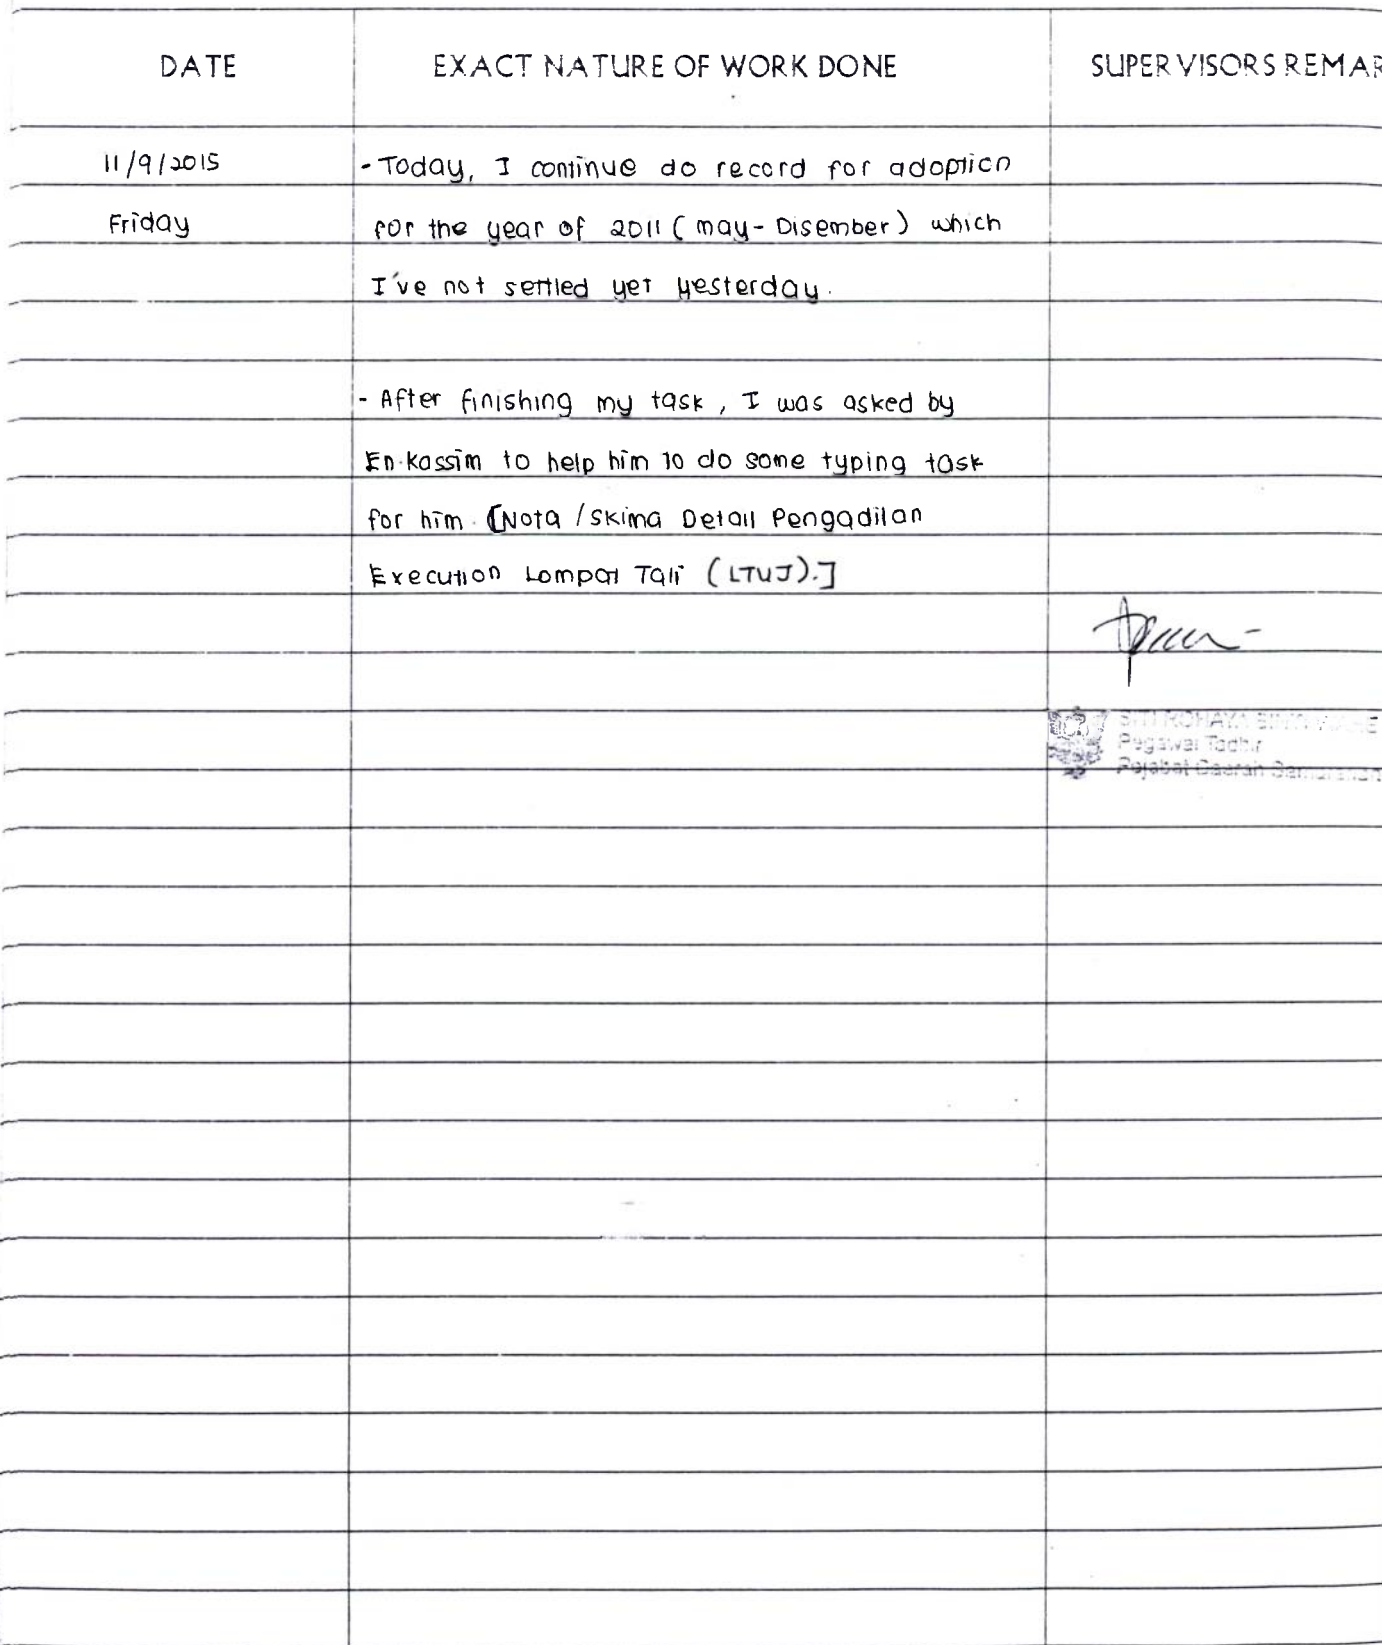 DATE EXACT NATURE OF WORK DONE SUPERVISORS REMAR
11/9/2015 - Today, I continue do record for adoption
Friday for the year of 2011 ( may - Disember) which
I've not settled yet yesterday.
- After finishing my task, I was asked by
En. Kassim to help him to do some typing task
for him. [Nota / Skima Detail Pengadilan
Execution Lompat Tali (LTUJ).]
SITI ROHAYA
Pegawai Tadbir
Pejabat Daerah